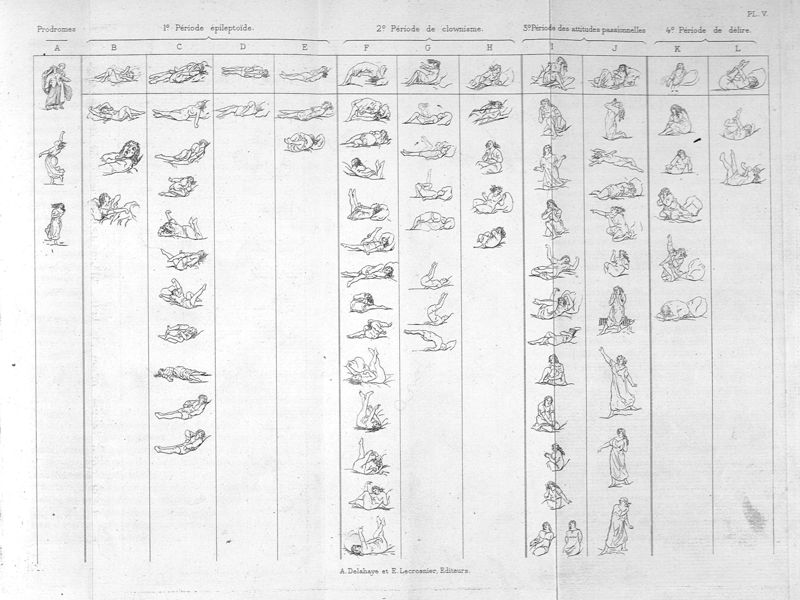 PL. V.
Prodromes 1º Période épileptoïde. 2º Période de clownisme. 3º Période des attitudes passionnelles 4º Période de délire.
A B C D E F G H I J K L
A. Delahaye et E. Lecrosnier, Editeurs.